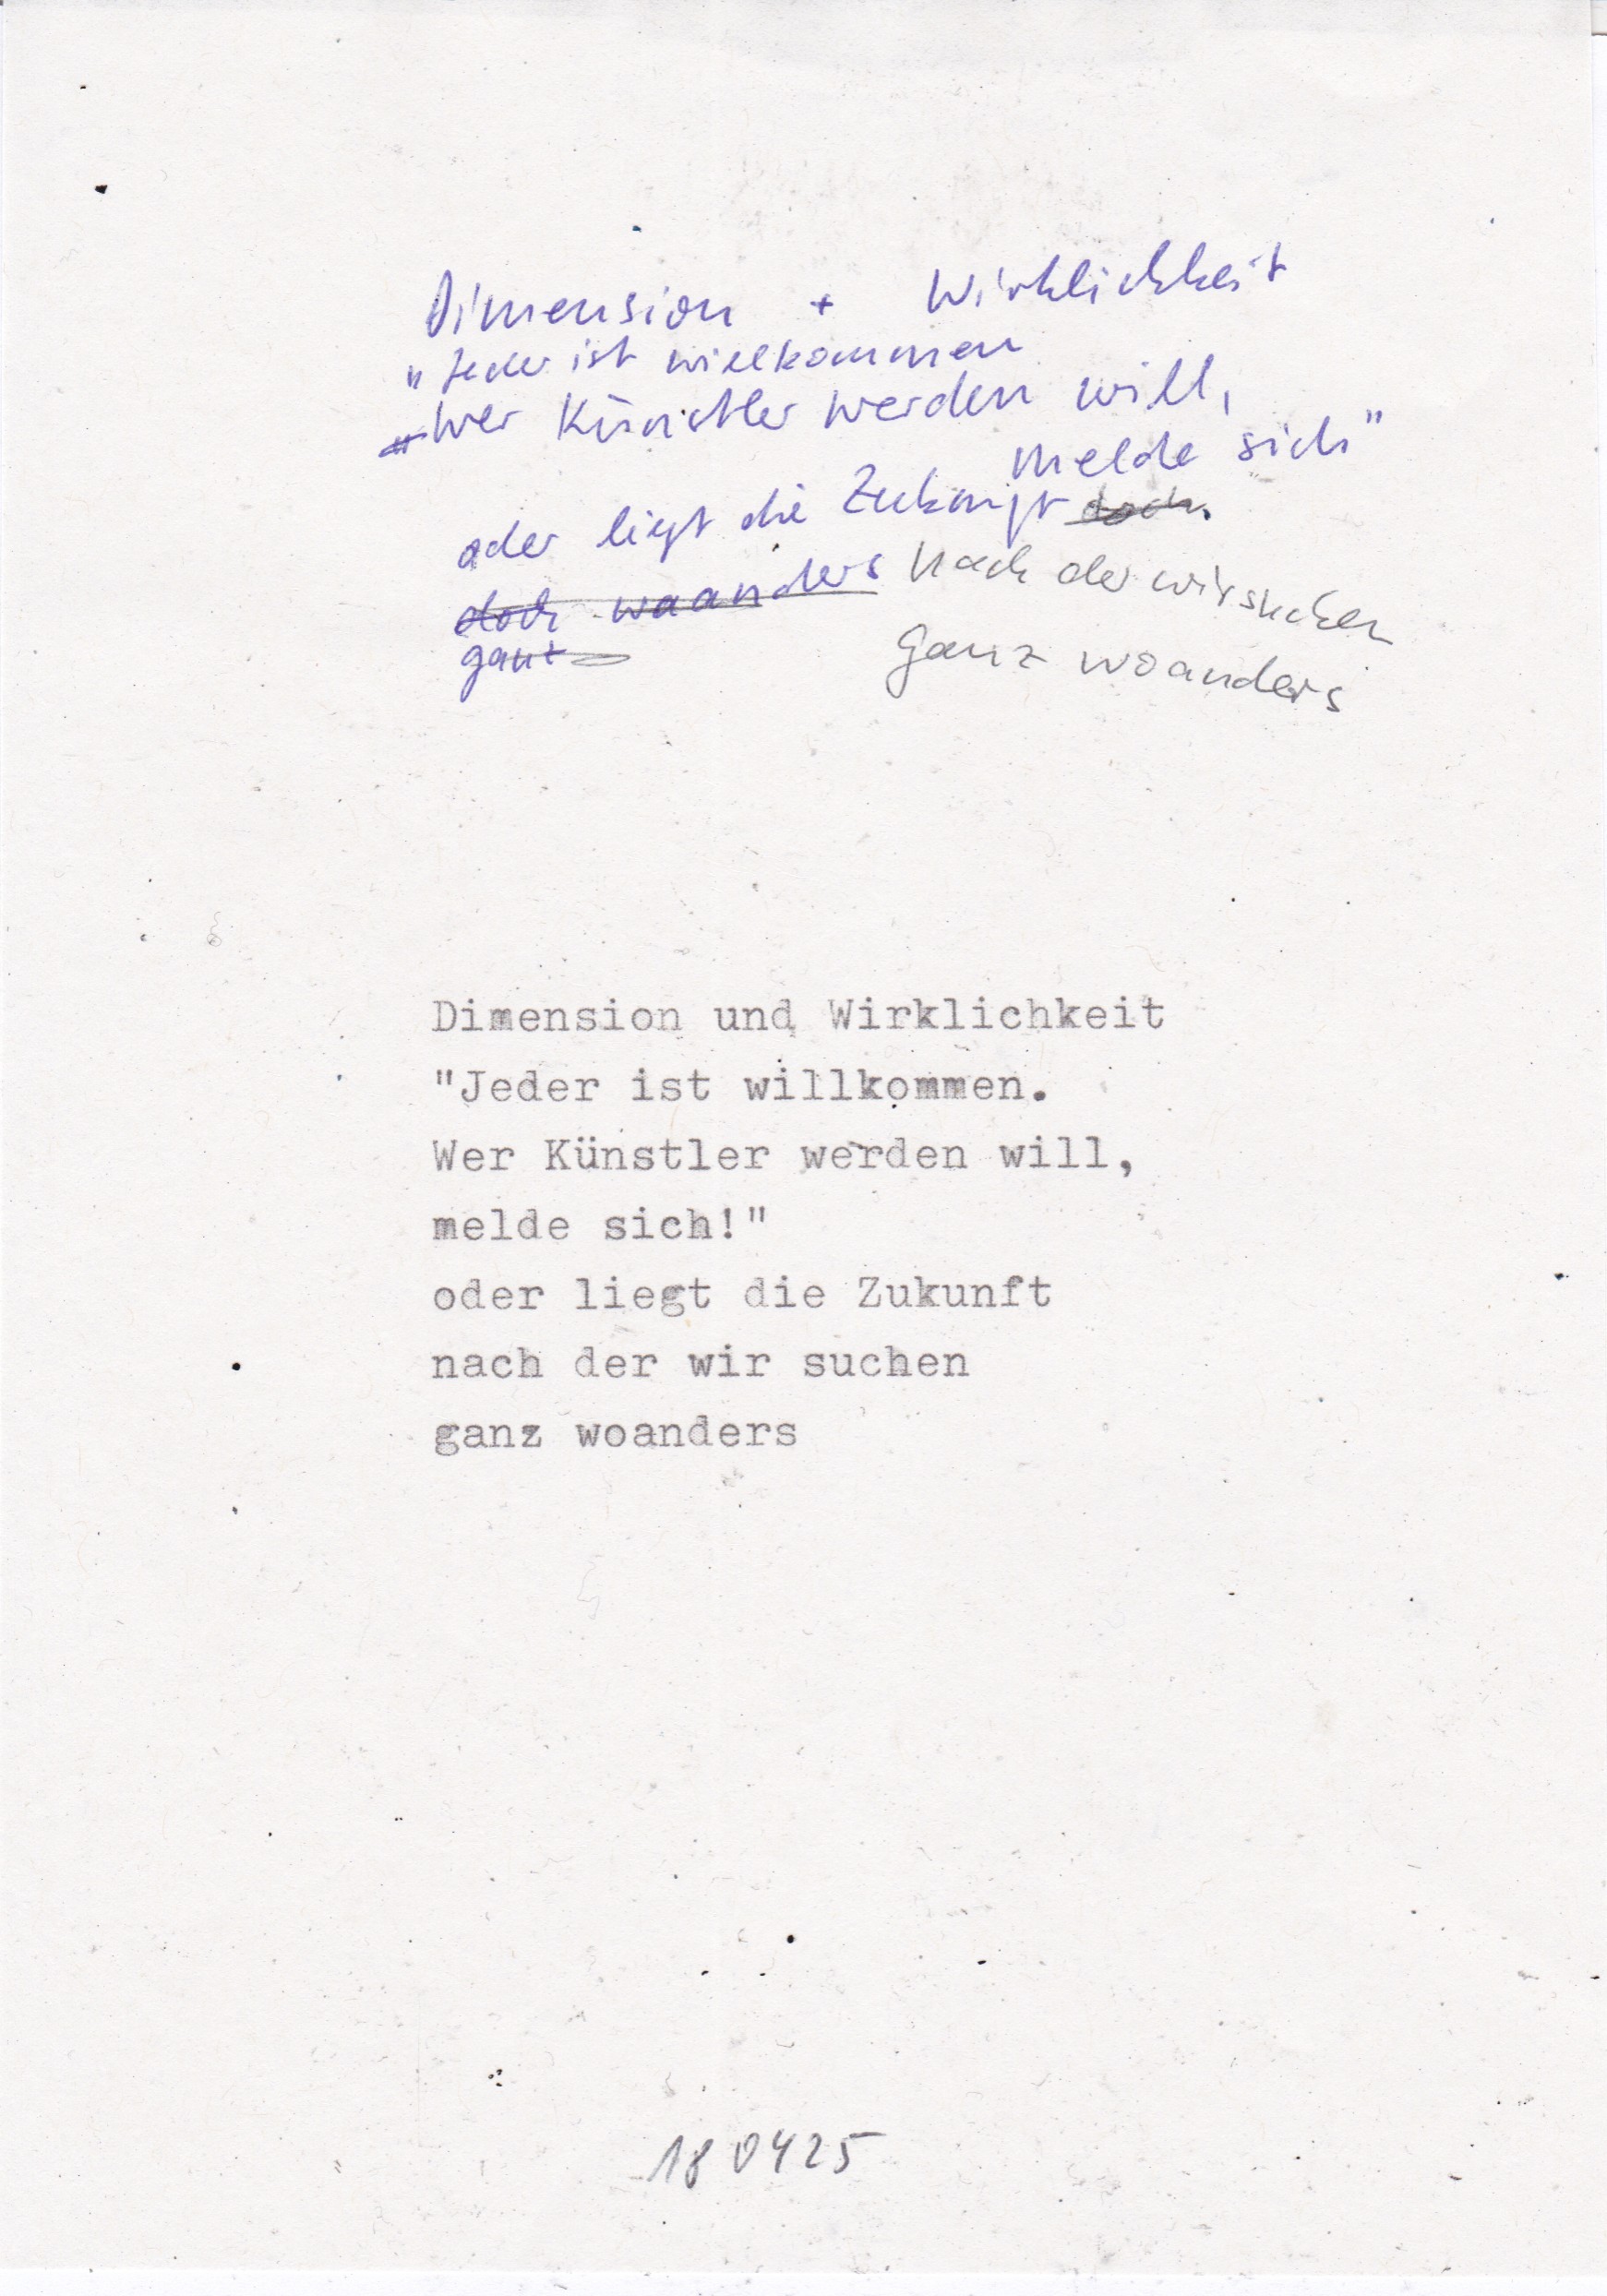 Dimension + Wirklichkeit
"Jeder ist willkommen
"Wer Künstler werden will,
melde sich"
oder liegt die Zukunft doch
doch waanders nach der wir suchen
ganz
ganz woanders
Dimension und Wirklichkeit
"Jeder ist willkommen.
Wer Künstler werden will,
melde sich!"
oder liegt die Zukunft
nach der wir suchen
ganz woanders
180425